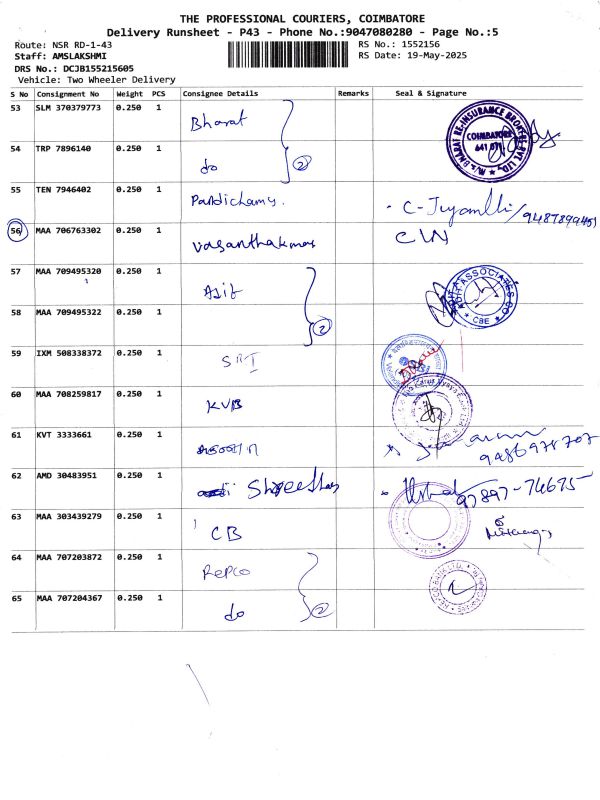 THE PROFESSIONAL COURIERS, COIMBATORE
Delivery Runsheet - P43 - Phone No.:9047080280 - Page No.:5
Route: NSR RD-1-43
RS No.: 1552156
Staff: AMSLAKSHMI
RS Date: 19-May-2025
DRS No.: DCJB155215605
Vehicle: Two Wheeler Delivery
S No Consignment No Weight PCS Consignee Details Remarks Seal & Signature
53 SLM 370379773 0.250 1 Bharat
COIMBATORE 641 011
54 TRP 7896140 0.250 1 do 2
55 TEN 7946402 0.250 1 Pandichamy.
56 MAA 706763302 0.250 1 Vasanthakumar
57 MAA 709495320 0.250 1
ADIT ASSOCIATES CBE
58 MAA 709495322 0.250 1 2
59 IXM 508338372 0.250 1
60 MAA 708259817 0.250 1 KVB
61 KVT 3333661 0.250 1
9486978707
62 AMD 30483951 0.250 1
97897-74675
63 MAA 303439279 0.250 1 CB
64 MAA 707203872 0.250 1 Repco
65 MAA 707204367 0.250 1 do 2